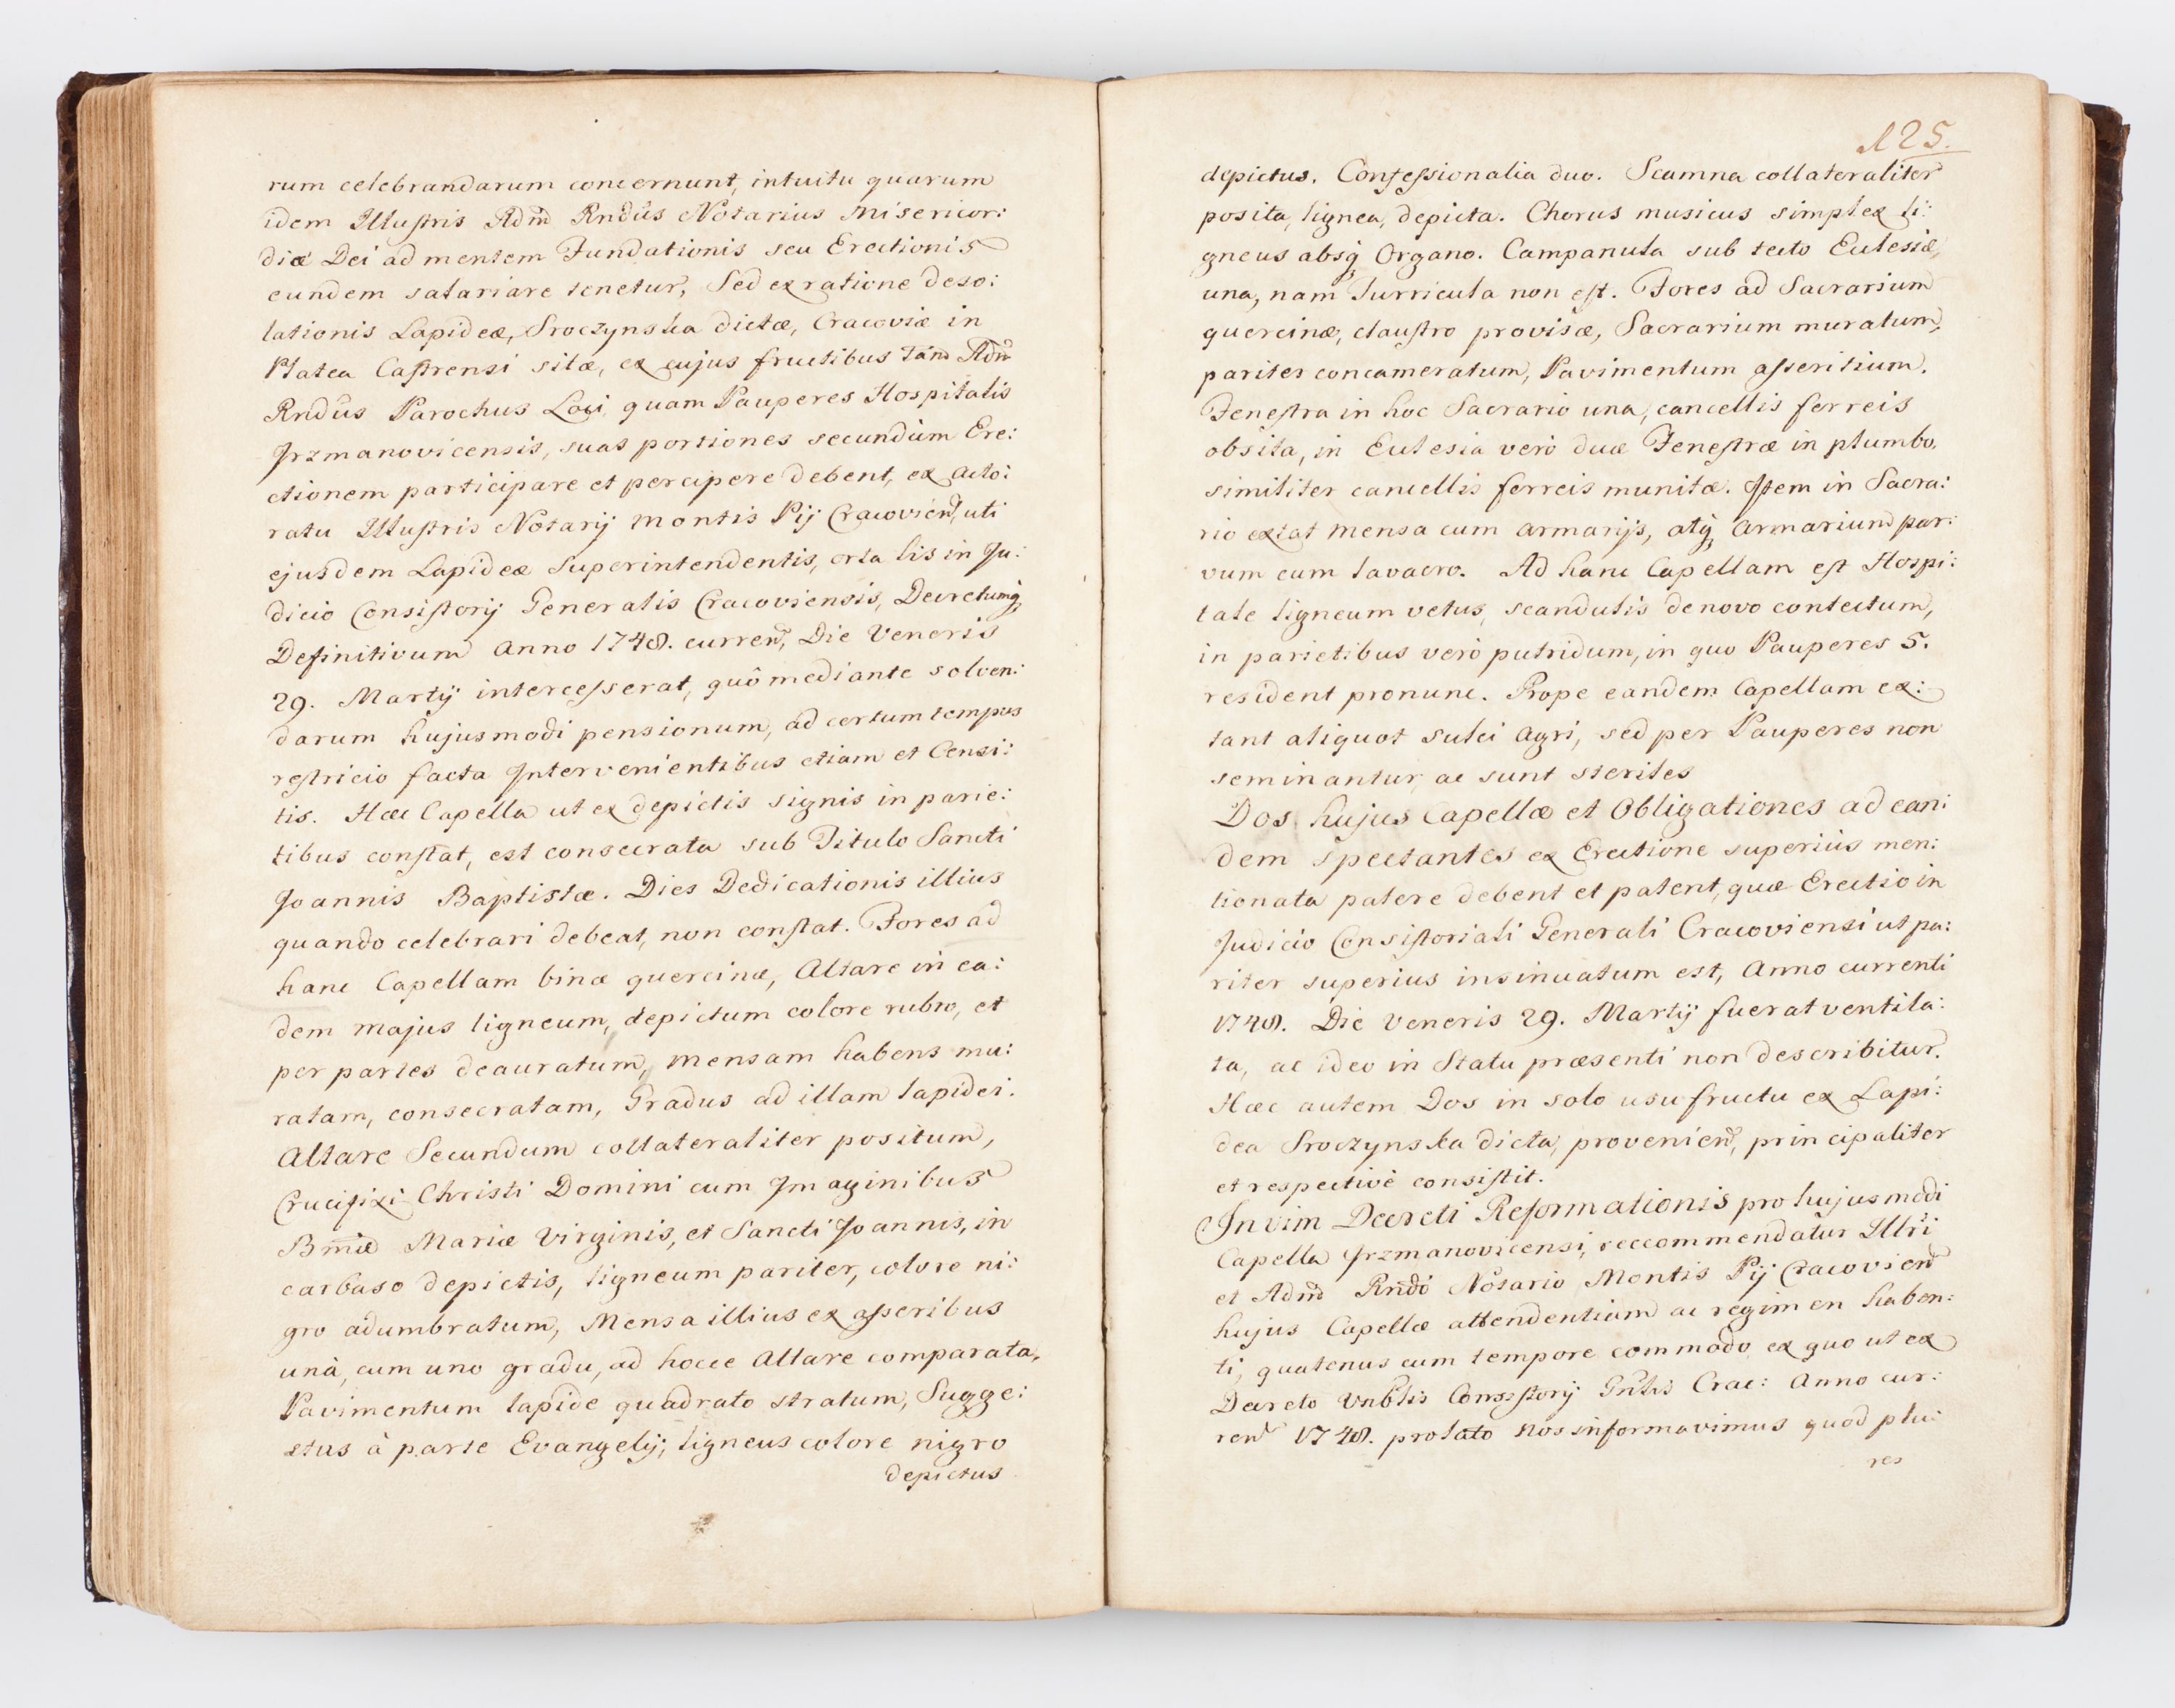 rum celebrandarum concernunt, intuitu quarum
idem Illustris Admd Rndus Notarius Misericor:
diæ Dei ad mentem Fundationis seu Erectionis
eundem salariare tenetur, Sed ex ratione deso:
lationis Lapideæ, Sroczynska dictæ, Cracoviæ in
Platea Castrensi sitæ, ex cujus fructibus tam Adm
Rndus Parochus Loci, quam Pauperes Hospitalis
Jrzmanovicensis, suas portiones secundùm Ere:
ctionem participare et percipere debent, ex acto:
ratu Illustris Notarij Montis Pij Cracovien, uti
ejusdem Lapideæ Superintendentis, orta lis in Ju:
dicio Consistorij Generalis Cracoviensis, Decretumq
Definitivum Anno 1748. curren, Die Veneris
29. Martij intercesserat, quô mediante solven:
darum hujusmodi pensionum, ad certum tempus
restricio facta Intervenientibus etiam et Censi:
tis. Hæc Capella ut ex depictis signis in parie:
tibus constat, est consecrata sub Titulo Sancti
Joannis Baptistæ. Dies Dedicationis illius
quando celebrari debeat, non constat. Fores ad
hanc Capellam binæ quercinæ, Altare in ea:
dem majus ligneum, depictum colore rubro, et
per partes deauratum, mensam habens mu:
ratam, consecratam, Gradus ad illam lapidei.
Altare Secundum collateraliter positum,
Crucifixi Christi Domini cum Imaginibus
Bmæ Mariæ Virginis, et Sancti Joannis, in
carbaso depictis, ligneum pariter, colore ni:
gro adumbratum, Mensa illius ex asseribus
unà, cum uno gradu, ad hocce Altare comparata,
Pavimentum lapide quadrato stratum, Sugge:
stus à parte Evangelij, ligneus colore nigro
depictus
125.
depictus. Confessionalia duo. Scamna collateraliter
posita, lignea, depicta. Chorus musicus simplex li:
gneus absq Organo. Campanula sub tecto Ecclesiæ,
una, nam Turricula non est. Fores ad Sacrarium
quercinæ, claustro provisæ, Sacrarium muratum,
pariter concameratum, Pavimentum asseritium.
Fenestra in hoc Sacrario una, cancellis ferreis
obsita, in Ecclesia verò duæ Fenestræ in plumbo,
similiter cancellis ferreis munitæ. Item in Sacra:
rio extat mensa cum armarijs, atq armarium par:
vum cum lavacro. Ad hanc Capellam est Hospi:
tale ligneum vetus, scandulis denovo contectum,
in parietibus verò putridum, in quo Pauperes 5.
resident pronunc. Prope eandem Capellam ex:
tant aliquot sulci agri, sed per Pauperes non
seminantur, ac sunt steriles
Dos hujus Capellæ et Obligationes ad ean:
dem spectantes ex Erectione superiùs men:
tionata patere debent et patent, quæ Erectio in
Judicio Consistoriali Generali Cracoviensi ut pa:
riter superius insinuatum est, Anno currenti
1748. Die Veneris 29. Martij fuerat ventila:
ta, ac ideo in Statu præsenti non describitur.
Hæc autem Dos in solo usufructu ex Lapi:
dea Sroczynska dicta, provenien, principaliter
et respectivè consistit.
In vim Decreti Reformationis pro hujusmodi
Capella Jrzmanovicensi, reccommendatur Illri
et Admd Rndo Notario Montis Pij Cracovien
hujus Capellæ attendentiam ac regimen haben:
ti, quatenus cum tempore commodo ex quo ut ex
Decreto Vnblis Consistorij Gnlis Crac: Anno cur:
ren 1748. prolato nos informavimus quod plu:
res